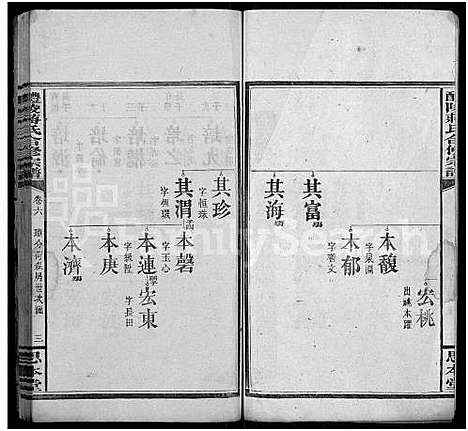 醴陵蔣氏合修宗譜
宏桃
出嗣本躍
本馥
本郁
字馨文
其富
其海
思本堂
其珍
字恒珠
其渭
字恒環
本磬
字玉心
本連
宏東
字長田
本庚
本濟
醴陵蔣氏合修宗譜
卷六
三
思本堂
FamilySearch